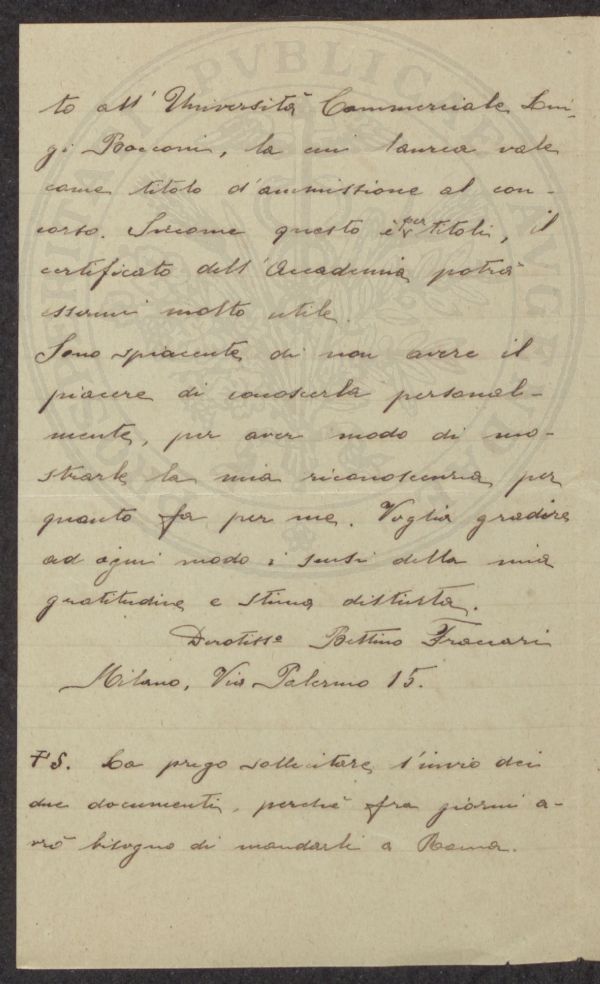 to all' Università Commerciale Lui-
gi Bocconi, la cui laurea vale
come titolo d'ammissione al con-
corso. Siccome questo è per titoli, il
certificato dell'Accademia potrà
essermi molto utile.
Sono spiacente di non avere il
piacere di conoscerla personal-
mente, per aver modo di mo-
strarle la mia riconoscenza per
quanto fa per me. Voglia gradire
ad ogni modo i sensi della mia
gratitudine e stima distinta.
Devotisse Bettino
Milano, Via Palermo 15.
PS. La prego sollecitare l'invio dei
due documenti, perchè fra giorni a-
vrò bisogno di mandarli a Roma.